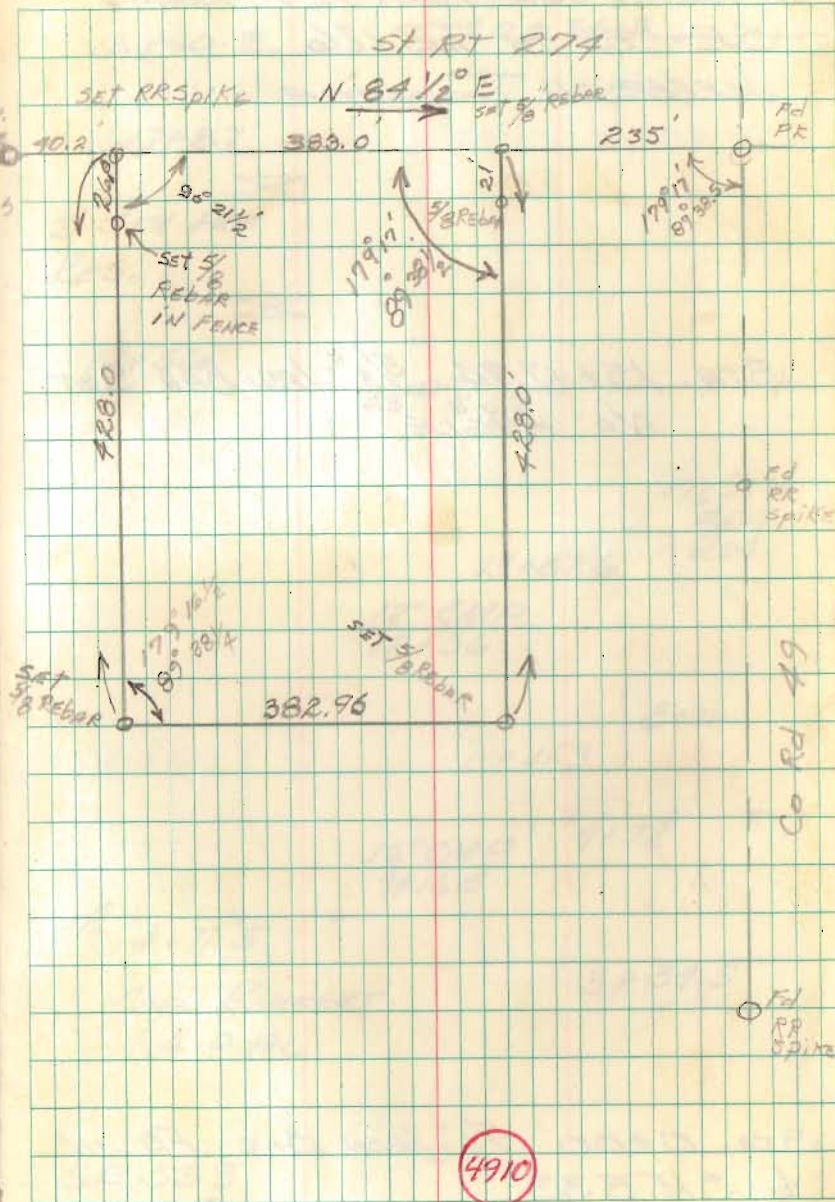 St RT 274
SET RRSpike
N 84 1/2° E
SET 5/8" REBAR
Fd
PK
40.2'
383.0
235'
26.0
90° 21 1/2'
21
5/8 REBAR
179° 17'
89° 38 1/2
179° 17'
89° 38.5'
SET 5/8
REBAR
IN FENCE
428.0
428.0'
Fd
RR
Spike
179° 16 1/2
89° 38 1/4
SET
5/8 REBAR
SET 5/8 REBAR
382.96
Co Rd 49
Fd
RR
Spike
4910